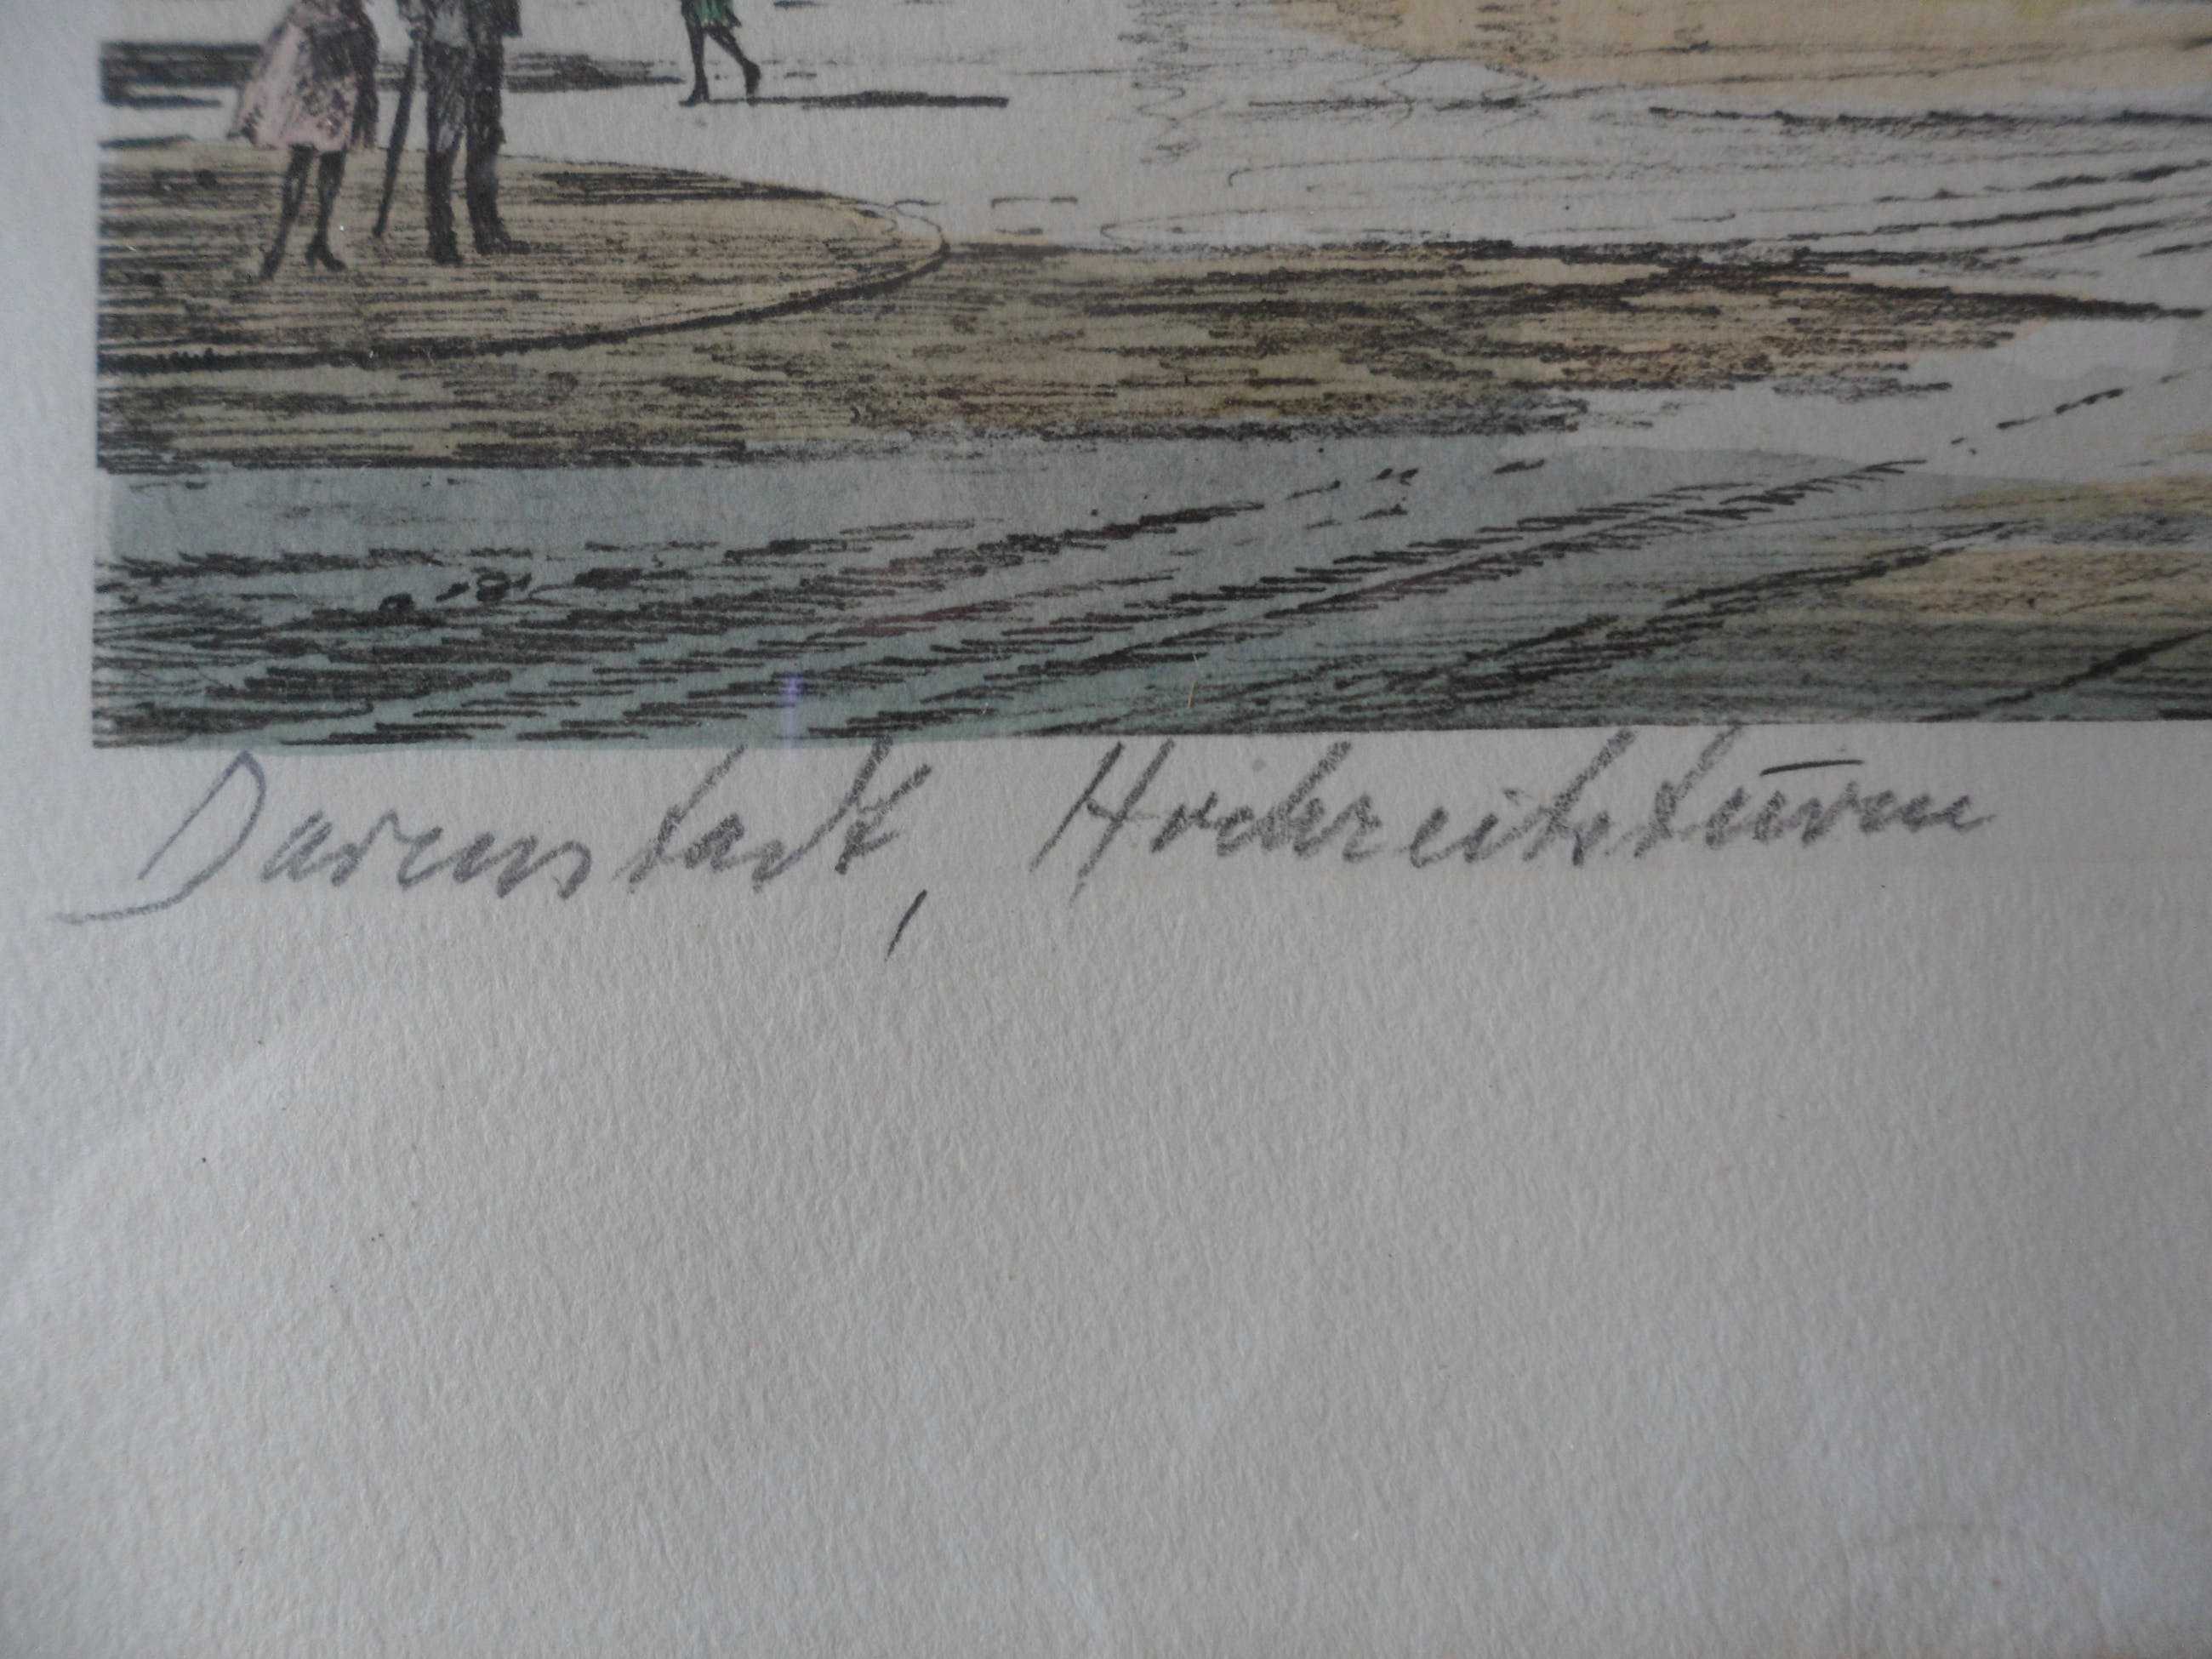 Darmstadt, Hochzeitsturm